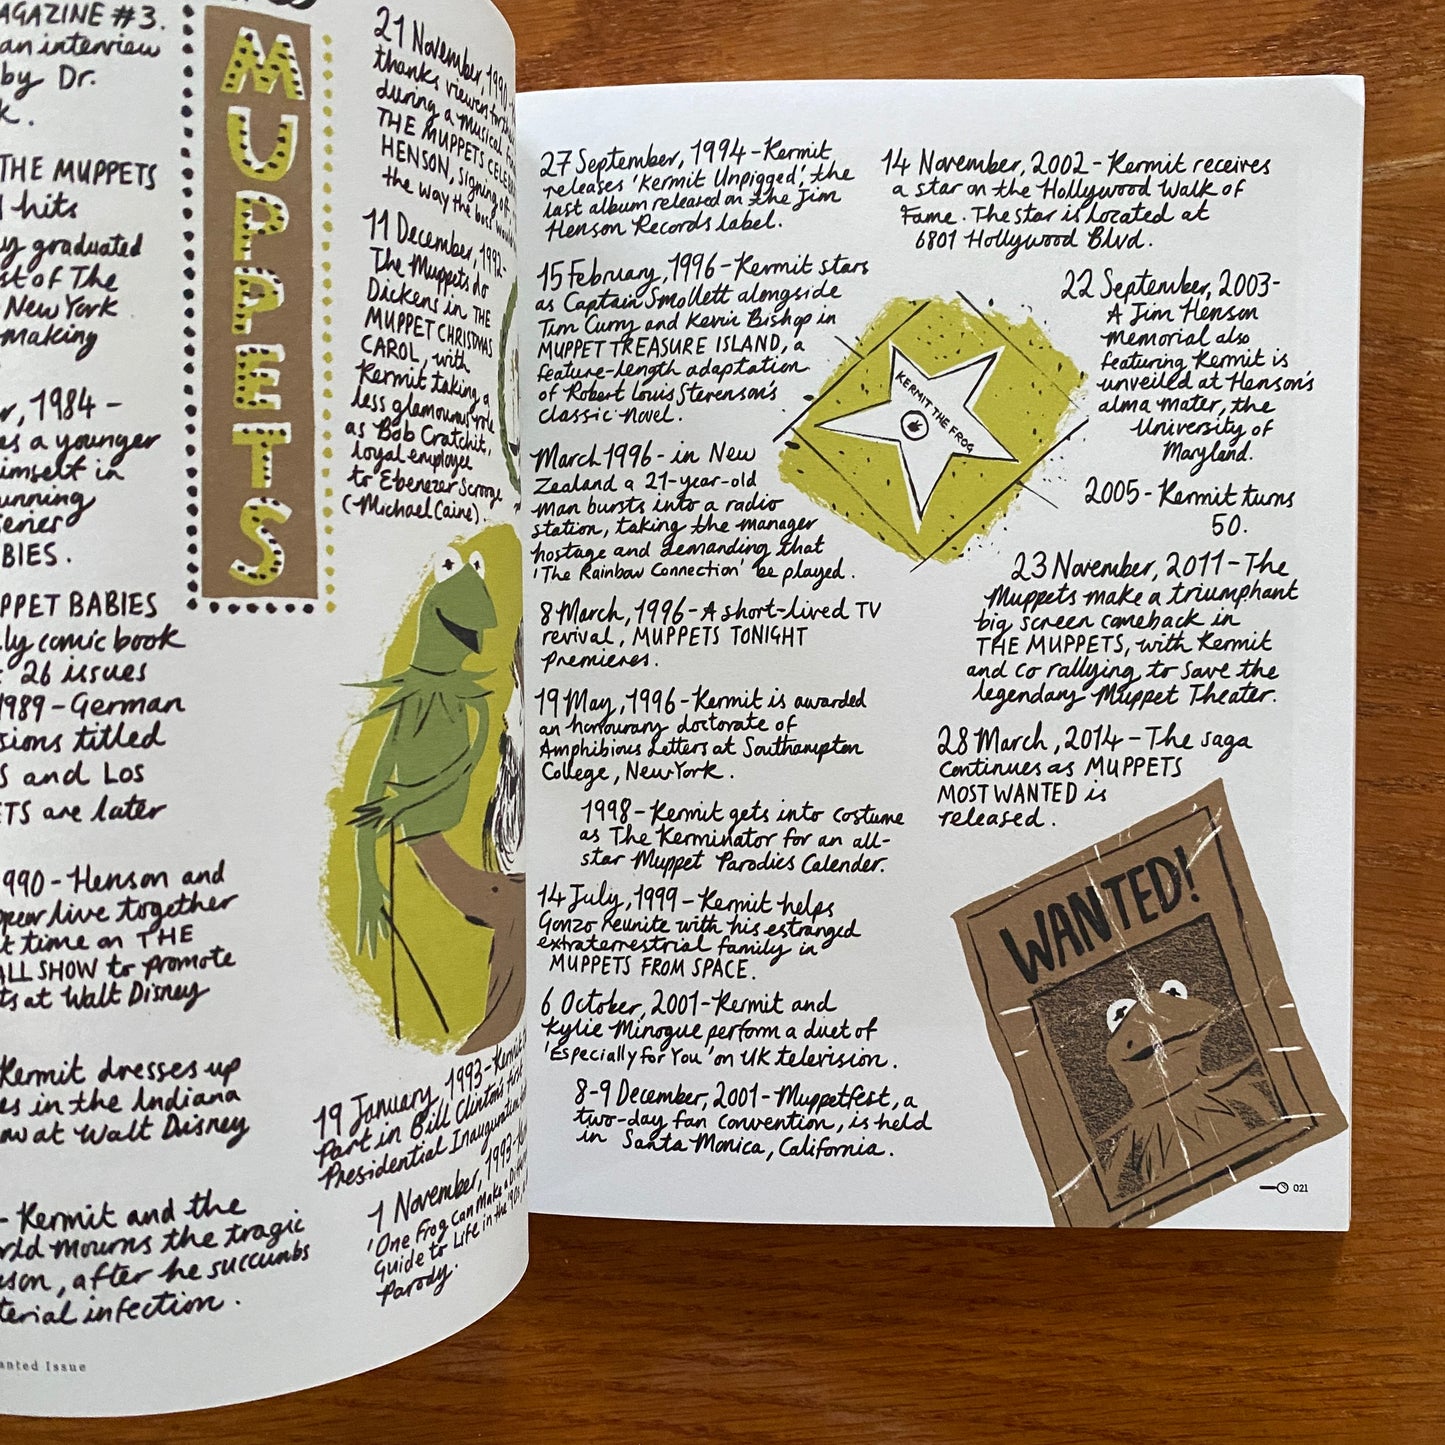 MAGAZINE #3.
an interview
by Dr.
THE MUPPETS
hits
graduated
of The
New York
making
1984 –
a younger
himself in
running
series
BABIES.
MUPPET BABIES
comic book
26 issues
1989 – German
titled
and Los
are later
1990 – Henson and
appear live together
time on THE
SHOW to promote
at Walt Disney
Kermit dresses up
in the Indiana
at Walt Disney
– Kermit and the
world mourns the tragic
Henson, after he succumbs
bacterial infection.
Wanted Issue
MUPPETS
21 November, 1990 –
thanks viewers for
during a musical
THE MUPPETS CELEBRATE
HENSON, signing off
the way the boss
11 December, 1992 –
The Muppets do
Dickens in THE
MUPPET CHRISTMAS
CAROL, with
Kermit taking a
less glamourous role
as Bob Cratchit,
loyal employee
to Ebenezer Scrooge
(– Michael Caine).
19 January, 1993 – Kermit
part in Bill Clinton's first
Presidential Inauguration
1 November, 1993 –
'One Frog Can Make a Difference
Guide to Life in the '90s,
parody.
27 September, 1994 – Kermit
releases 'Kermit Unpigged', the
last album released on the Jim
Henson Records label.
15 February, 1996 – Kermit stars
as Captain Smollett alongside
Tim Curry and Kevin Bishop in
MUPPET TREASURE ISLAND, a
feature-length adaptation
of Robert Louis Stevenson's
classic novel.
March 1996 – in New
Zealand a 21-year-old
man bursts into a radio
station, taking the manager
hostage and demanding that
'The Rainbow Connection' be played.
8 March, 1996 – A short-lived TV
revival, MUPPETS TONIGHT
premieres.
19 May, 1996 – Kermit is awarded
an honourary doctorate of
Amphibious Letters at Southampton
College, New York.
1998 – Kermit gets into costume
as The Kerminator for an all-
star Muppet Parodies Calender.
14 July, 1999 – Kermit helps
Gonzo reunite with his estranged
extraterrestrial family in
MUPPETS FROM SPACE.
6 October, 2001 – Kermit and
Kylie Minogue perform a duet of
'Especially for You' on UK television.
8-9 December, 2001 – Muppetfest, a
two-day fan convention, is held
in Santa Monica, California.
14 November, 2002 – Kermit receives
a star on the Hollywood Walk of
Fame. The star is located at
6801 Hollywood Blvd.
KERMIT THE FROG
22 September, 2003 –
A Jim Henson
memorial also
featuring Kermit is
unveiled at Henson's
alma mater, the
University of
Maryland.
2005 – Kermit turns
50.
23 November, 2011 – The
Muppets make a triumphant
big screen comeback in
THE MUPPETS, with Kermit
and co rallying to save the
legendary Muppet Theater.
28 March, 2014 – The saga
continues as MUPPETS
MOST WANTED is
released.
WANTED!
021